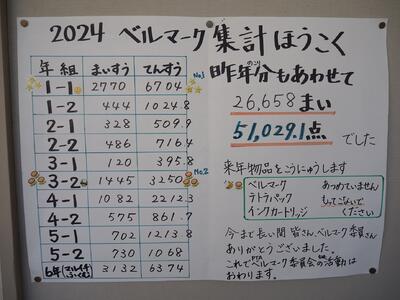 2024 ベルマーク集計ほうこく
年 組 まいすう てんすう
1-1 2770 6704 No.1
1-2 444 1024.8
2-1 328 509.9
2-2 486 716.4
3-1 120 395.8
3-2 1445 3250 No.2
4-1 1082 2212.3
4-2 575 861.7
5-1 702 1213.8
5-2 730 1068
6年(マルイチふくむ) 3132 6374
昨年分もあわせて
のこり
26,658まい
51,029.1点
でした
来年物品をこうにゅうします
ベルマーク あつめていません
テトラパック もってこないで
インクカートリッジ ください
今まで長い間 皆さん、ベルマーク委員さん
ありがとうございました。
これでPTAベルマーク委員会の活動は
おわります。